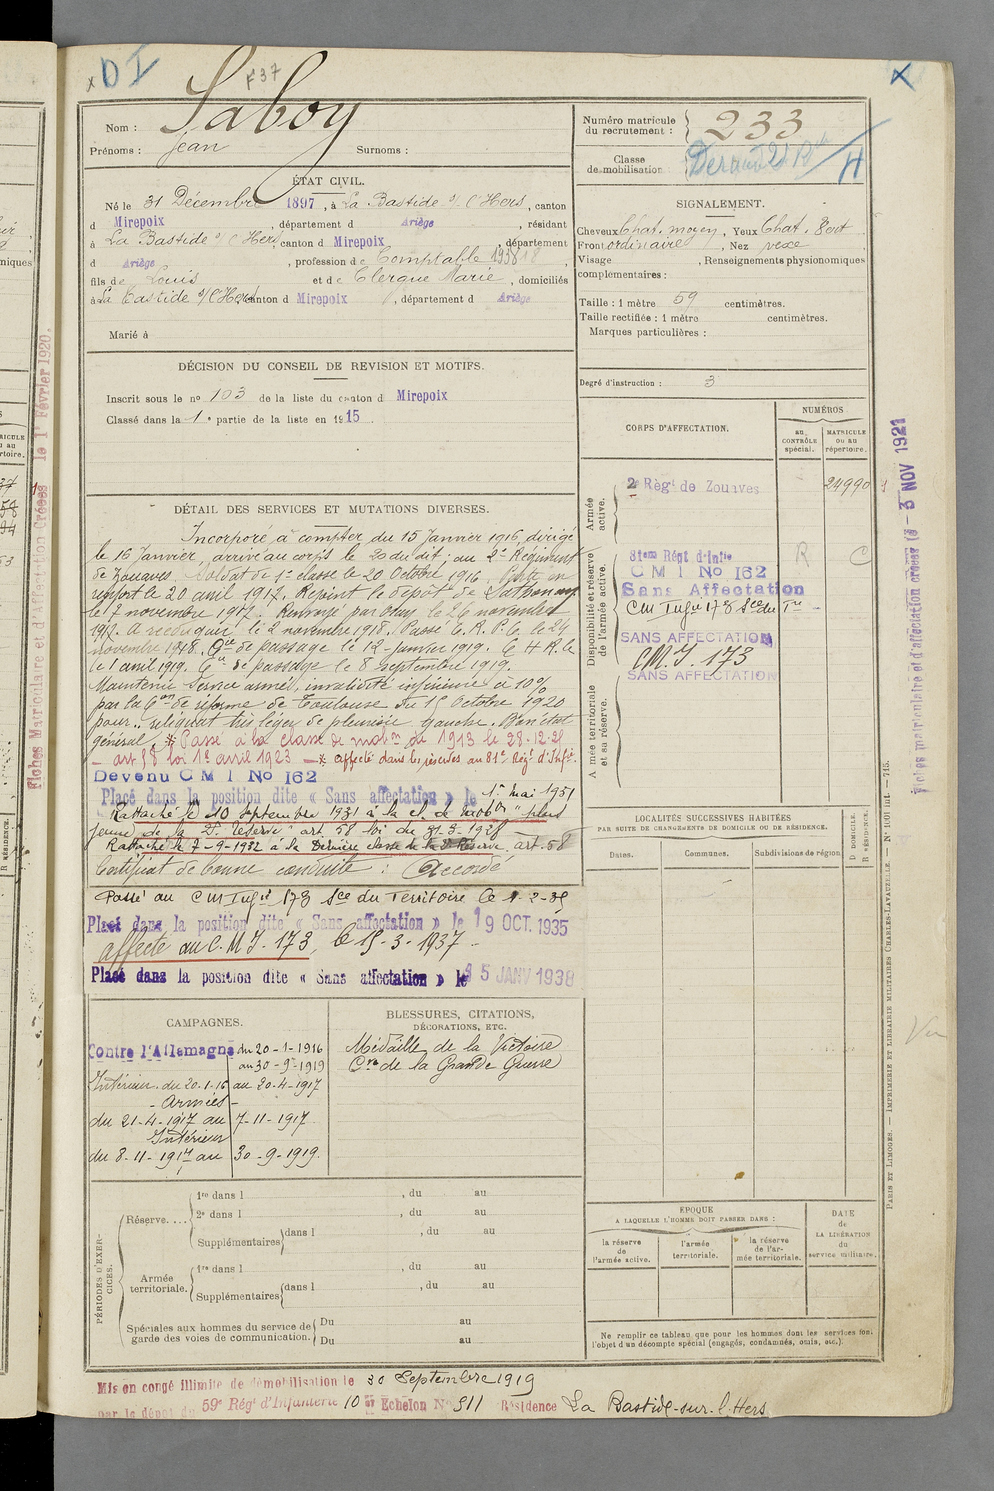 x D I
F 37
X
Nom : Saboy
Prénoms : Jean Surnoms :
Numéro matricule du recrutement : 233
Classe de mobilisation
ÉTAT CIVIL.
Né le 31 Décembre 1897, à La Bastide s/ l'Hers, canton
d Mirepoix, département d Ariège, résidant
à La Bastide s/ l'Hers, canton d Mirepoix, département
d Ariège, profession de Comptable 1938
fils de Louis et de Clergue Marie, domiciliés
à La Bastide s/ l'Hers canton d Mirepoix, département d Ariège
Marié à
SIGNALEMENT.
Cheveux Chat. moyen, Yeux Chat. vert
Front ordinaire, Nez vexe
Visage , Renseignements physionomiques
complémentaires :
Taille : 1 mètre 59 centimètres.
Taille rectifiée : 1 mètre centimètres.
Marques particulières :
Degré d'instruction : 3
DÉCISION DU CONSEIL DE REVISION ET MOTIFS.
Inscrit sous le n° 103 de la liste du canton d Mirepoix
Classé dans la 1e partie de la liste en 1915.
CORPS D'AFFECTATION.
NUMÉROS
au CONTRÔLE spécial.
MATRICULE ou au répertoire.
Armée active.
2e Régt de Zouaves 24990
Disponibilité et réserve de l'armée active.
81em Régt d'Infie R C
C M I No 162
Sans Affectation
CM Infie 173 Sce du Tre
SANS AFFECTATION
C.M.I. 173
SANS AFFECTATION
Armée territoriale et sa réserve.
DÉTAIL DES SERVICES ET MUTATIONS DIVERSES.
Incorporé à compter du 15 Janvier 1916, dirigé
le 16 Janvier arrivé au corps le 20 du dit ; au 2e Régiment
de Zouaves. Soldat de 1e classe le 20 Octobre 1916. Parti en
renfort le 20 avril 1917. Rejoint le dépôt de Sathonay
le 7 novembre 1917. Renvoyé par Blay le 26 novembre
1917. A rééduquer le 2 novembre 1918. Passé C. R. P. G. le 24
novembre 1918. Cie de passage le 12 Janvier 1919. C H R le
le 1 avril 1919. Cie de passage le 8 septembre 1919.
Maintenu service armé, invalidité inférieure à 10%
par la Con de réforme de Toulouse du 15 Octobre 1920
pour : reliquat très léger de pleurésie gauche. Bon état
général * Passé à la classe de mobon de 1913 le 28-12-21
- art 58 loi 1er avril 1923 - * affecté dans les réserves au 81e Régt d'Infie.
Devenu C M I No 162
Placé dans la position dite « Sans affectation » le 1er mai 1931
Rattaché le 10 septembre 1931 à la cl. de mobon "plus
jeune de la 2e réserve" art. 58 loi du 31-3-1928
Rattaché le 7-9-1932 à la Dernière classe de la 2e Réserve. art. 58
Certificat de bonne conduite : Accordé
Passé au CM Infie 173 Sce du Territoire le 1-2-35
Placé dans la position dite « Sans affectation » le 19 OCT. 1935
affecté au C.M.I. 173, le 15-3-1937-
Placé dans la position dite « Sans affectation » le 15 JANV 1938
LOCALITÉS SUCCESSIVES HABITÉES
PAR SUITE DE CHANGEMENTS DE DOMICILE OU DE RÉSIDENCE.
D DOMICILE.
R RÉSIDENCE.
Dates. Communes. Subdivisions de région
CAMPAGNES.
Contre l'Allemagne du 20-1-1916
au 30-9-1919
Intérieur. du 20.1.16 au 20-4-1917
- Armées -
du 21-4-1917 au 7-11-1917
Intérieur
du 8-11-1917 au 30-9-1919.
BLESSURES, CITATIONS,
DÉCORATIONS, ETC.
Médaille de la Victoire
Cve de la Grande Guerre
PÉRIODES D'EXERCICES.
Réserve....
1re dans l , du au
2e dans l , du au
Supplémentaires dans l , du au
Armée territoriale.
1re dans l , du au
Supplémentaires dans l , du au
Spéciales aux hommes du service de garde des voies de communication.
Du au
Du au
ÉPOQUE
A LAQUELLE L'HOMME DOIT PASSER DANS :
la réserve de l'armée active.
l'armée territoriale.
la réserve de l'armée territoriale.
DATE de LA LIBÉRATION du service militaire.
Ne remplir ce tableau que pour les hommes dont les services font
l'objet d'un décompte spécial (engagés, condamnés, omis, etc.).
Mis en congé illimité de démobilisation le 30 Septembre 1919
par le dépôt du 59e Régt d'Infanterie 10 Echelon N° 911 Résidence La Bastide-sur-l'Hers
Fiches Matriculaire et d'Affectation Créées le 1r Février 1920.
Fiches matriculaire et d'affectation créées le - 3 NOV 1921
PARIS ET LIMOGES. — IMPRIMERIE ET LIBRAIRIE MILITAIRES CHARLES-LAVAUZELLE. — N° 1001 int. — 715.
Vu